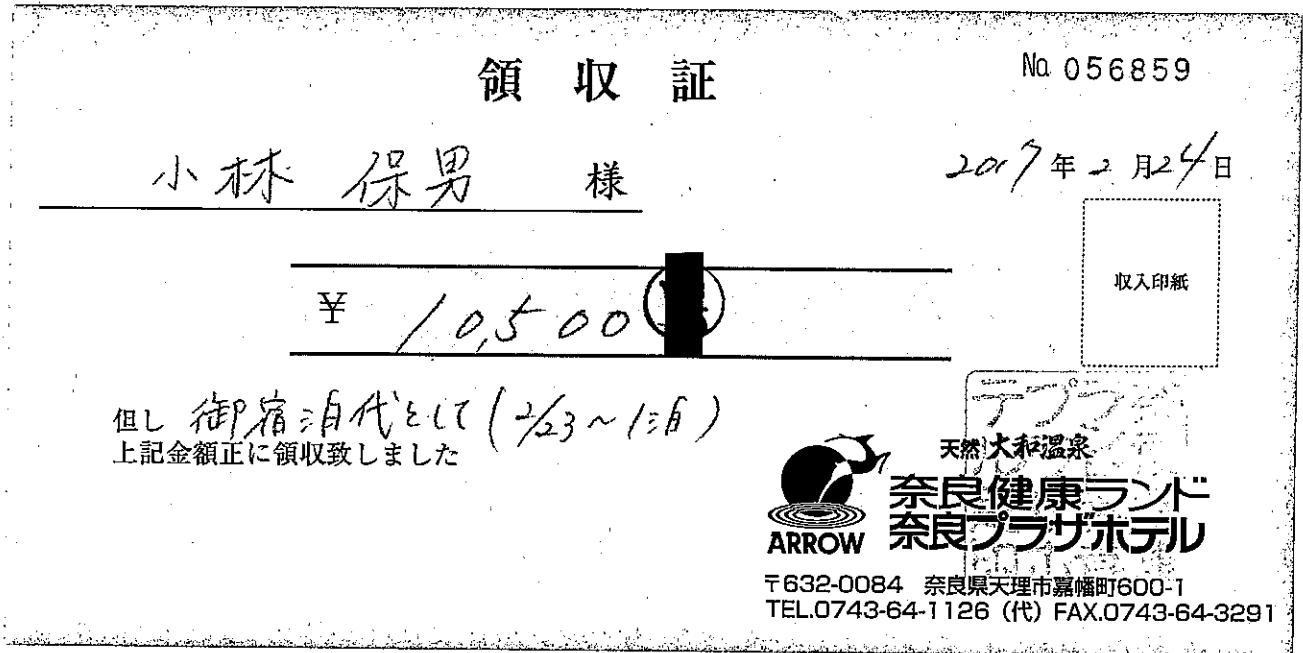 領収証
No. 056859
小林 保男 様
2017年2月24日
¥ 10,500
収入印紙
但し 御宿泊代として(2/23~1泊)
上記金額正に領収致しました
天然 大和温泉
奈良健康ランド
ARROW 奈良プラザホテル
〒632-0084 奈良県天理市嘉幡町600-1
TEL.0743-64-1126 (代) FAX.0743-64-3291